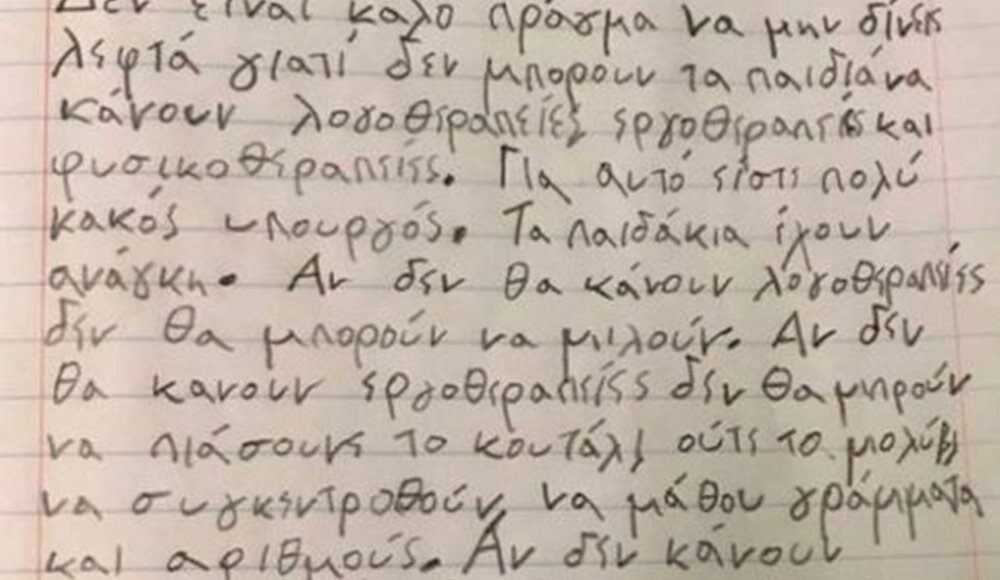 Δεν είναι καλό πράγμα να μην δίνεις
λεφτά γιατί δεν μπορουν τα παιδιά να
κάνουν λογοθεραπείες εργοθεραπειες και
φυσικοθεραπείες. Για αυτό είστε πολύ
κακός υπουργός. Τα παιδάκια έχουν
ανάγκη. Αν δεν θα κάνουν λογοθεραπείες
δεν θα μπορούν να μιλούν. Αν δεν
θα κανουν εργοθεραπείες δεν θα μπρούν
να πιάσουν το κουτάλι ούτε το μολύβι
να συγκεντροθούν, να μάθου γράμματα
και αριθμούς. Αν δεν κάνουν